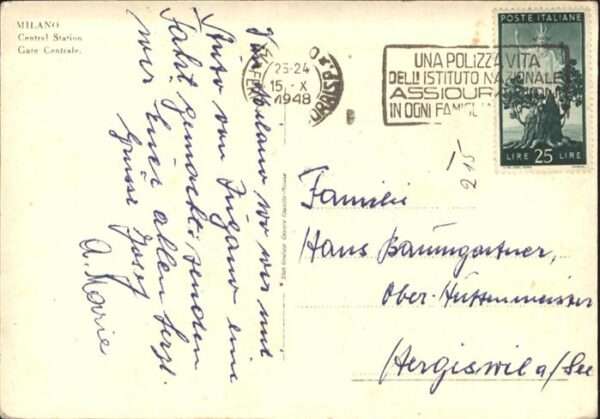 MILANO
Central Station
Gare Centrale.
Von Milano wo wir mit
Auto von Lugano eine
Fahrt gemacht senden
wir Euch allen herzl.
Grüsse Josef
A. Marie
23-24
15. X
1948
UNA POLIZZA VITA
DELL'ISTITUTO NAZIONALE
ASSICURAZIONI
IN OGNI FAMIGLIA
POSTE ITALIANE
LIRE 25 LIRE
Familie
Hans Baumgartner,
Ober-Hüttenmeister
Hergiswil a/See